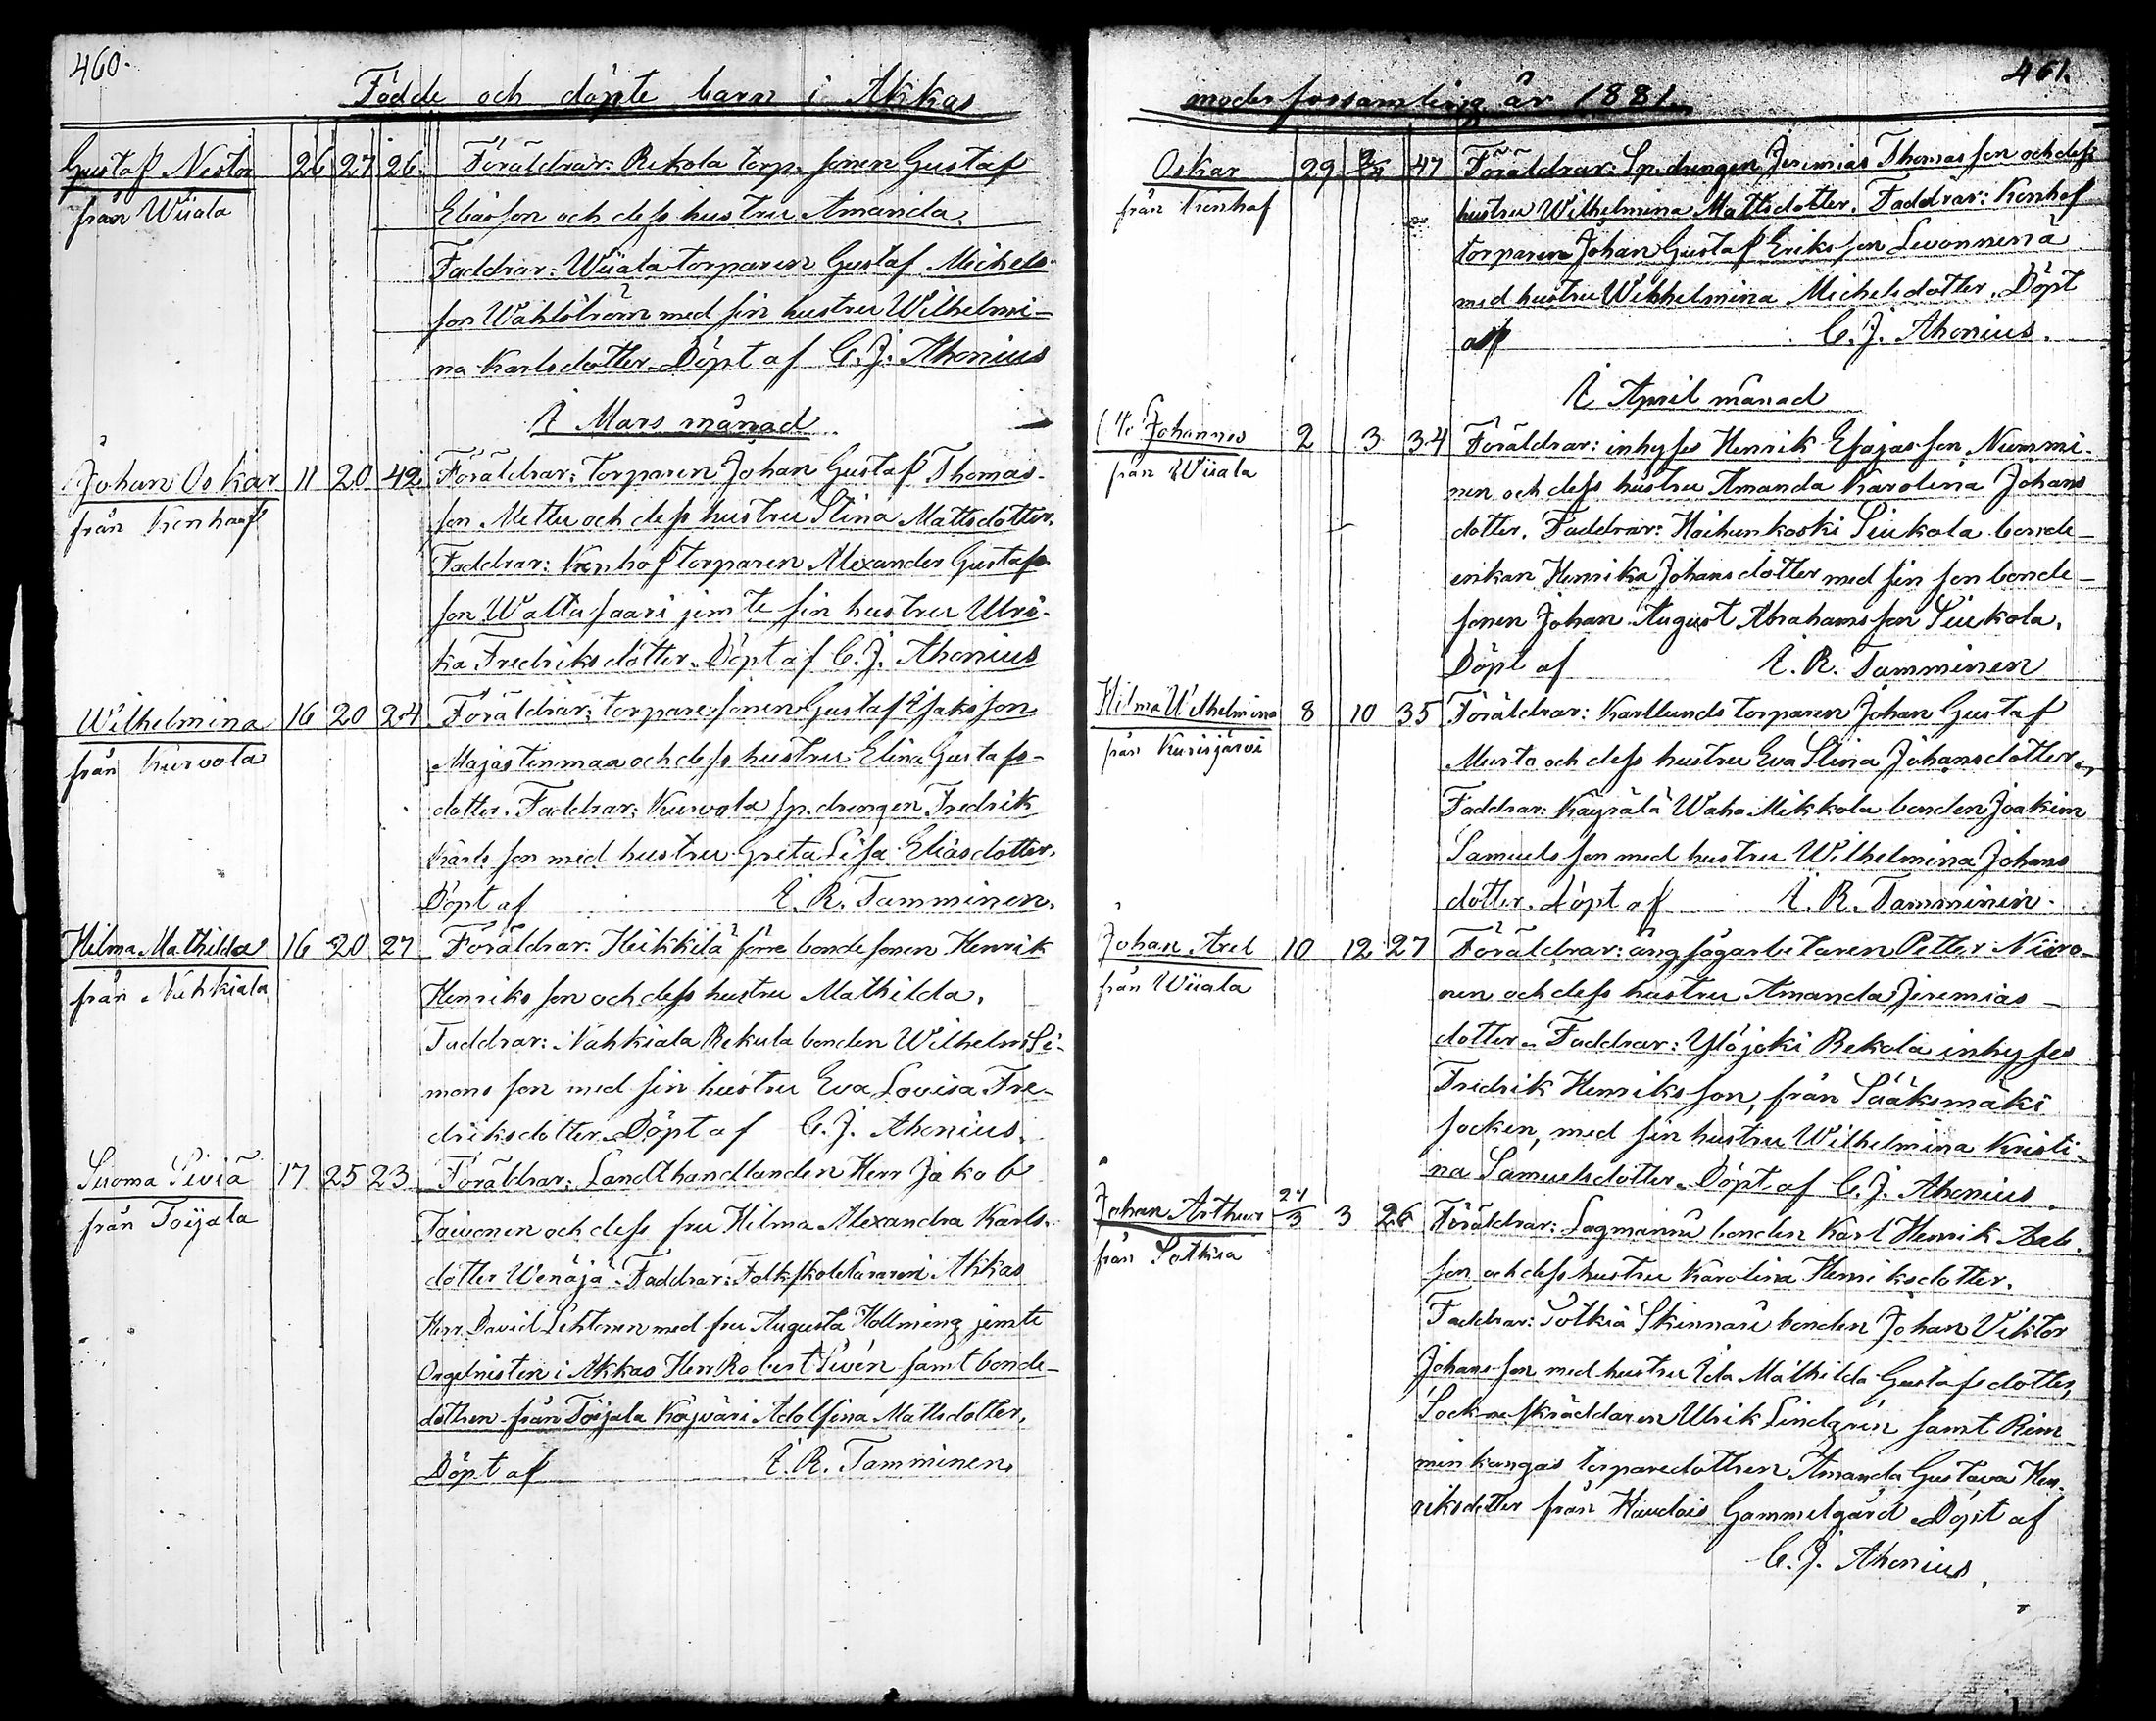 460.
Födde och döpte barn i Akkas
Gustaf Nestor 26 27 26. Föräldrar: Rekola torp. sonen Gustaf
från Wiiala Eliasson och dess hustru Amanda.
Faddrar: Wiiala torparen Gustaf Michels-
son Wahlström med sin hustru Wilhelmi-
na Karlsdotter. Döpt af C. J. Ahonius
I Mars månad
Johan Oskar 11 20 42 Föräldrar: torparen Johan Gustaf Thomas-
från Kenhof son Mettu och dess hustru Stina Mattsdotter.
Faddrar: Kenhof torparen Alexander Gustafs-
son Waltasaari jemte sin hustru Ulri-
ka Fredriksdotter. Döpt af C. J. Ahonius
Wilhelmina 16 20 24 Föräldrar: torpare sonen Gustaf Isaksson
från Kurvola Majastenmaa och dess hustru Elina Gustafs-
dotter. Faddrar: Kurvola sp. drengen Fredrik
Karlsson med hustru Greta Lisa Eliasdotter.
Döpt af I. R. Tamminen.
Hilma Mathilda 16 20 27 Föräldrar: Heikkilä förre bondesonen Henrik
från Nahkiala Henriksson och dess hustru Mathilda.
Faddrar: Nahkiala Rekula bonden Wilhelm Si-
monsson med sin hustru Eva Lovisa Fre-
driksdotter. Döpt af C. J. Ahonius.
Suoma Siviä 17 25 23 Föräldrar: Landthandlanden Herr Jakob
från Toijala Toivonen och dess fru Hilma Alexandra Karls-
dotter Wenäjä. Faddrar: Folkskolelararen i Akkas
Herr David Lehtonen med fru Augusta Hollming jemte
Orgelnisten i Akkas Herr Robert Sivén samt bonde-
dottren från Toijala Köyväri Adolfina Mattsdotter.
Döpt af I. R. Tamminen.
461.
moderforsamling år 1881.
Oskar 29 2/4 47 Föräldrar: Sp. drengen Jeremias Thomasson och dess
från Kenhof hustru Wilhelmina Mattsdotter. Faddrar: Kenhof
torparen Johan Gustaf Eriksson Levonnenä
med hustru Wilhelmina Michelsdotter. Döpt
af C. J. Ahonius.
I April månad
Johannes 2 3 34 Föräldrar: inhyses Henrik Esajasson Nummi-
från Wiiala nen och dess hustru Amanda Karolina Johans
dotter. Faddrar: Haihunkoski Siukola bonde-
enkan Henrika Johansdotter med sin son bonde-
sonen Johan August Abrahamsson Siukola.
Döpt af I. R. Tamminen
Hilma Wilhelmina 8 10 35 Föräldrar: Karllunds torparen Johan Gustaf
från Kurisjärvi Musta och dess hustru Eva Stina Johansdotter.
Faddrar: Käyrälä Waha Mikkola bonden Joakim
Samuelsson med hustru Wilhelmina Johans
dotter. Döpt af I. R. Tamminen.
Johan Axel 10 12 27 Föräldrar: ångsågarbetaren Petter Niiro-
från Wiiala nen och dess hustru Amanda Jeremias-
dotter. Faddrar: Ylöjoki Rekola inhyses
Fredrik Henriksson, från Sääksmäki
socken, med sin hustru Wilhelmina Kristi-
na Samuelsdotter. Döpt af C. J. Ahonius.
Johan Arthur 24/3 3 26 Föräldrar: Lagmannu bonden Karl Henrik
från Sotkia son och dess hustru Karolina Henriksdotter.
Faddrar: Sotkia Skinnari bonden Johan Viktor
Johansson med hustru Ida Mathilda Gustafsdotter,
Sockneskräddaren Ulrik Lindgrén samt Rim-
minkangas torparedottren Amanda Gustava Hen-
riksdotter från Haudois Gammelgård. Döpt af
C. J. Ahonius.